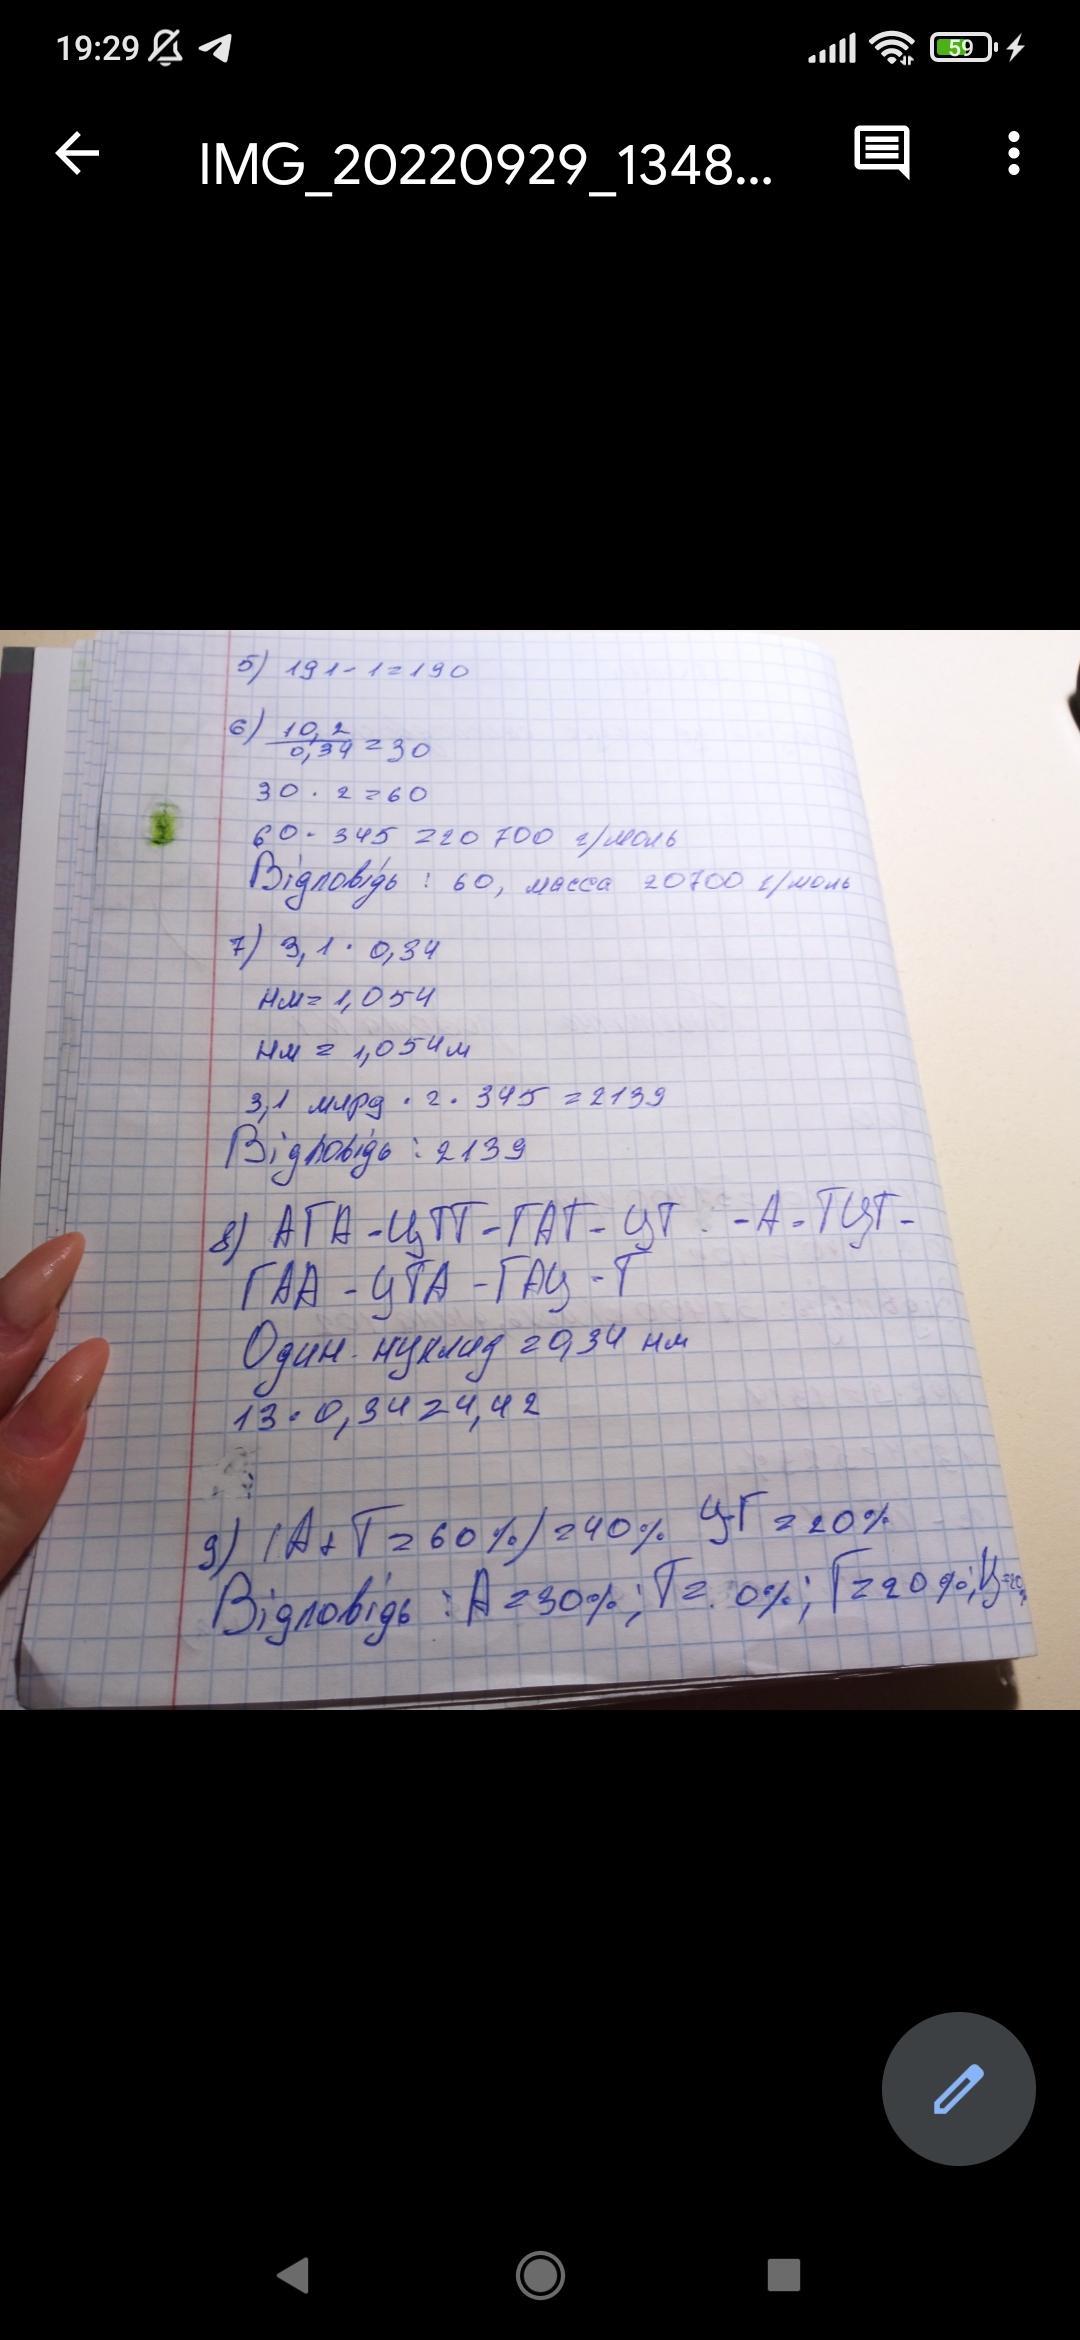 19:29
59
IMG_20220929_1348...
5) 191-1=190
6) 10,2
0,34 =30
30 · 2=60
60 · 345 =20 700 г/моль
Відповідь : 60, масса 20700 г/моль
7) 3,1 · 0,34
нм= 1,054
нм = 1,054м
3,1 млрд · 2 · 345 =2139
Відповідь : 2139
8) АГА -ЦТТ-ГАТ- ЦТ -А - ТЦТ-
ГАА -ЦТА -ГАЦ -Т
Один нуклид =0,34 нм
13 · 0,34=4,42
9) (А+Т=60%)=40% ЦГ =20%
Відповідь : А=30%; Т= 0%; Г=20%; Ц=20%